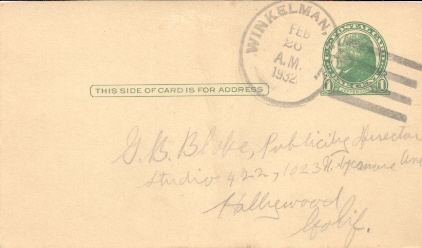 WINKELMAN,
FEB
20
A.M.
1932
THIS SIDE OF CARD IS FOR ADDRESS
G. B. Blake, Publicity Director
Studio 422, 1023 N. Sycamore Ave
Hollywood
Calif.